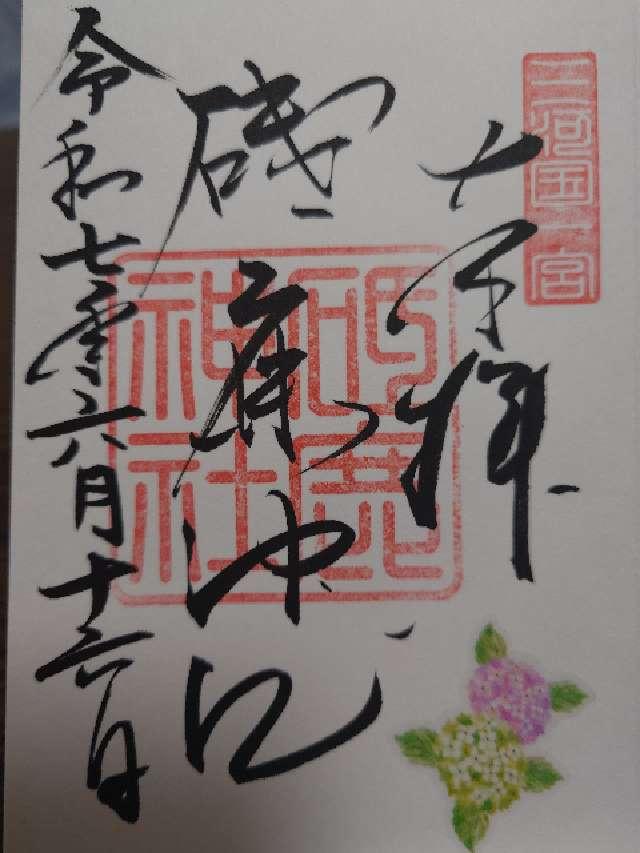 三河国一宮
奉拝
砥鹿神社
砥鹿神社
令和七年六月十六日